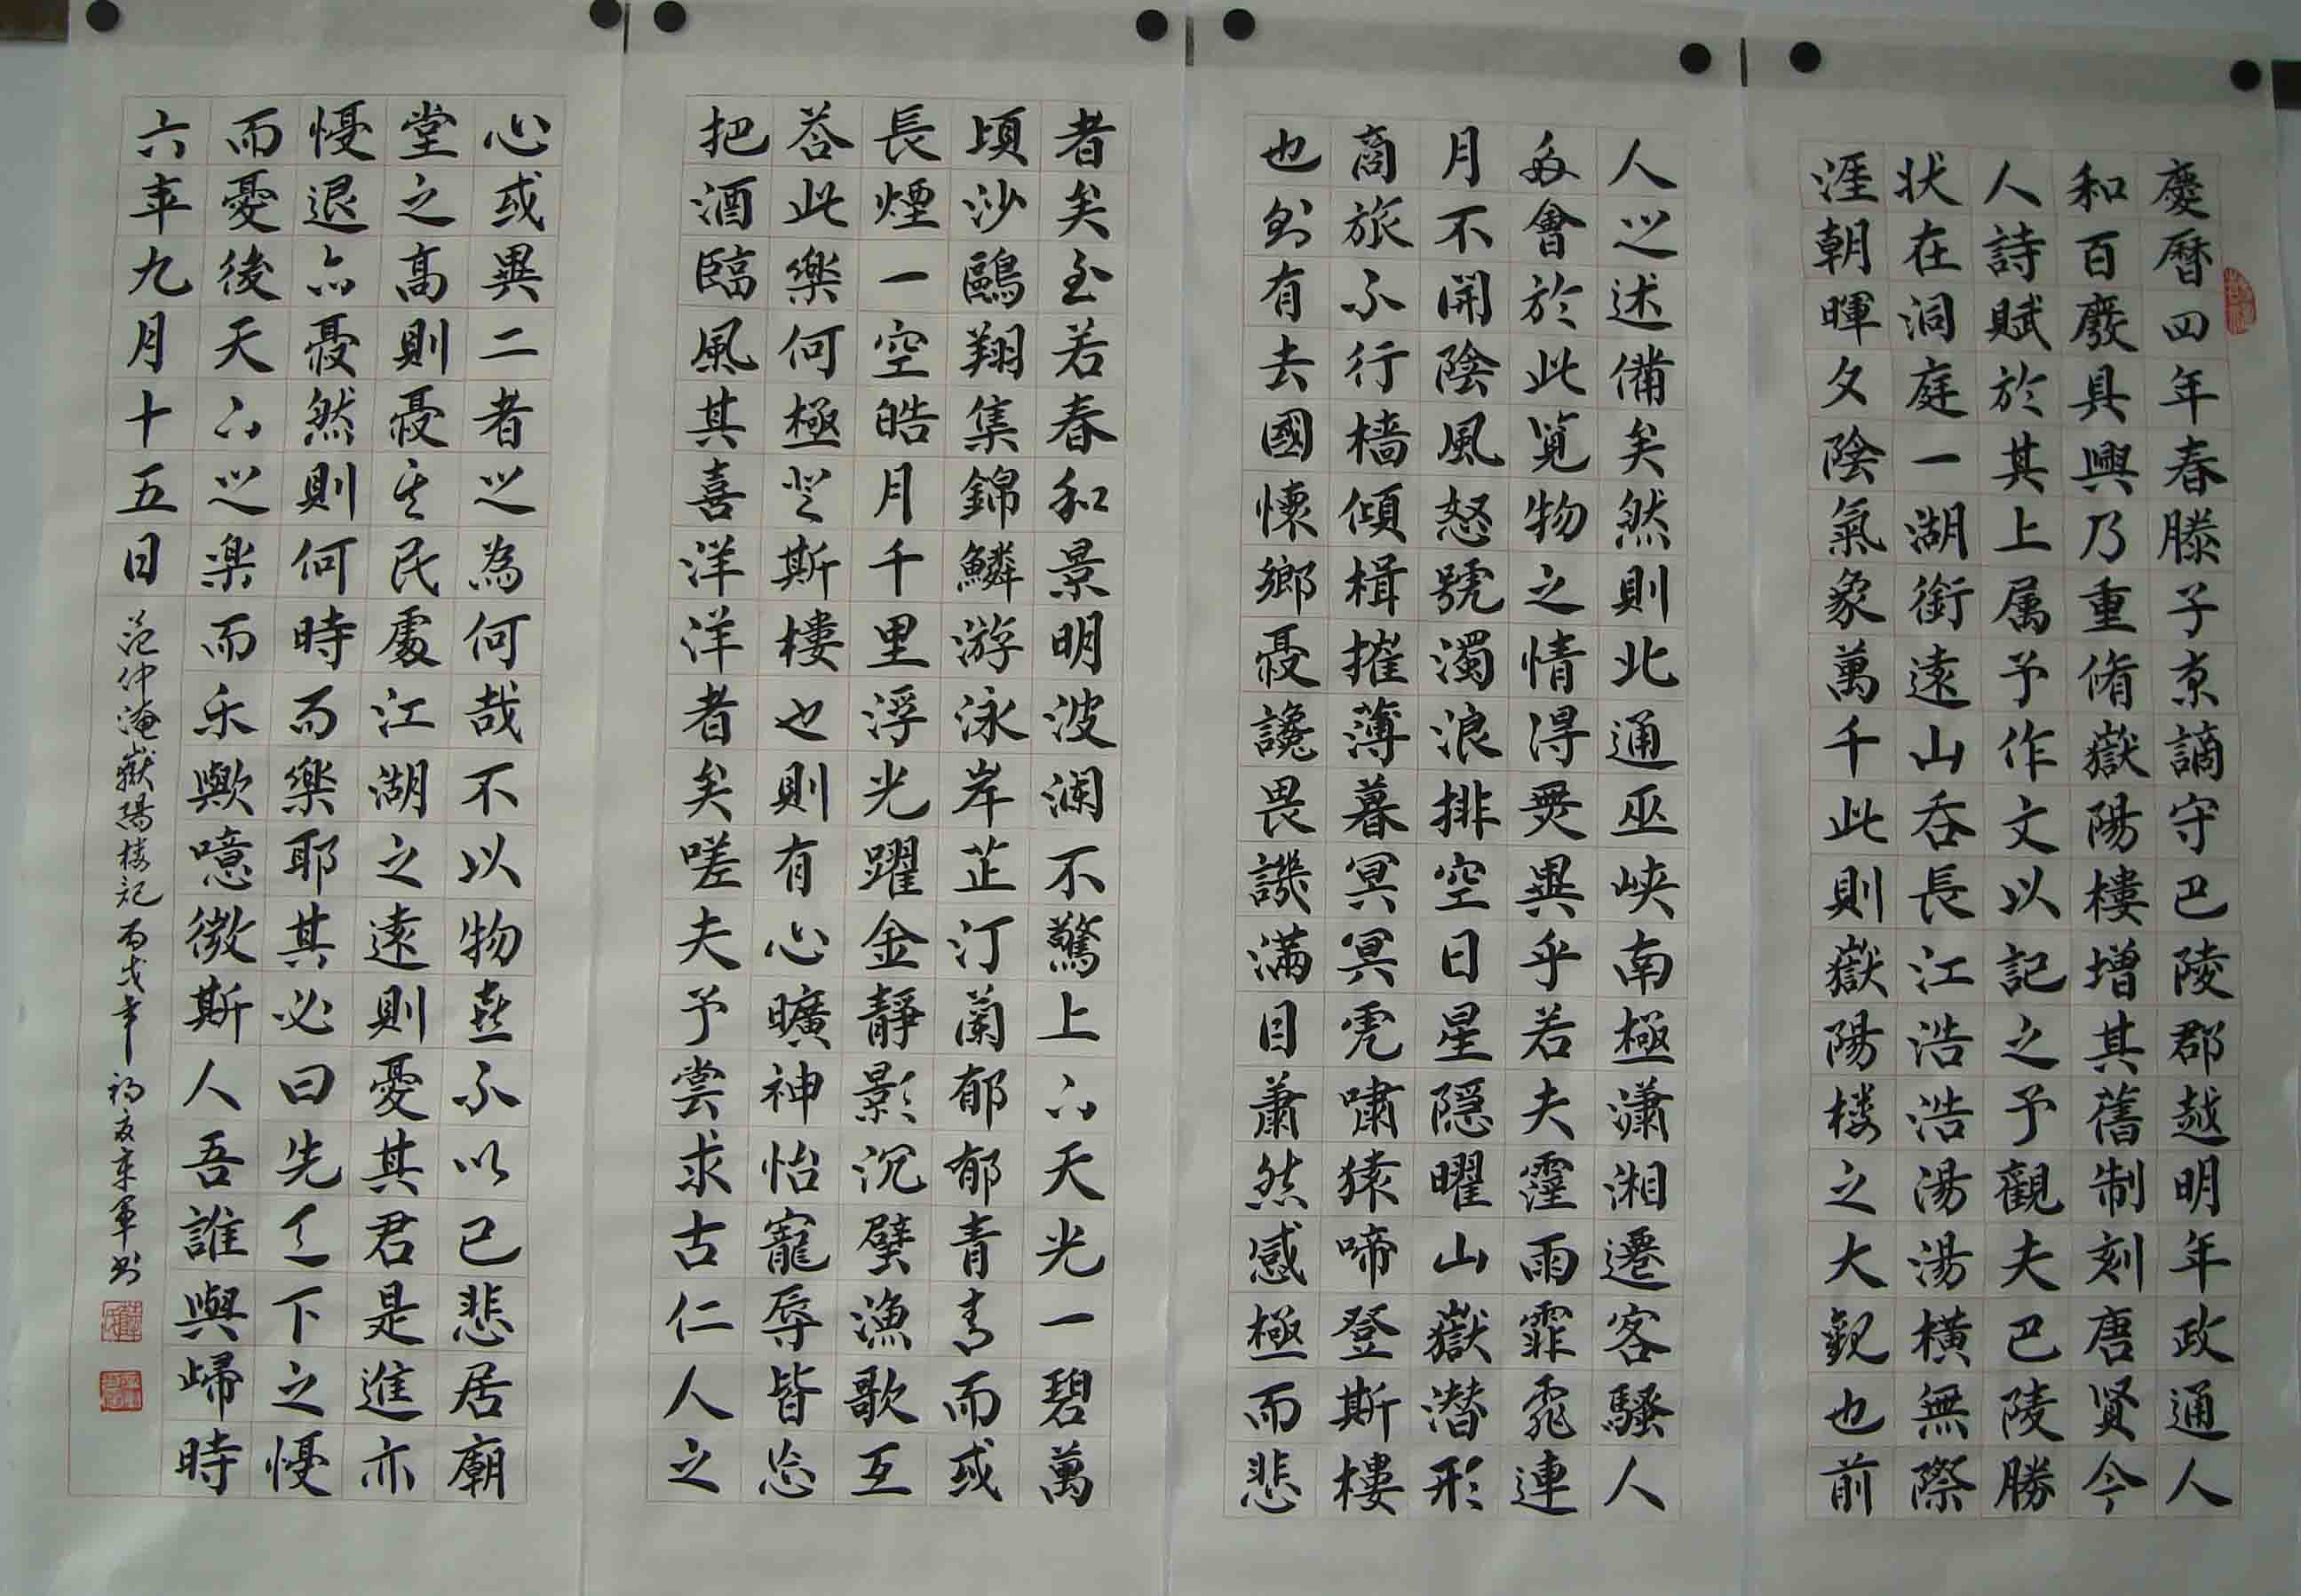 慶曆四年春滕子京謫守巴陵郡越明年政通人
和百廢具興乃重脩嶽陽樓增其舊制刻唐賢今
人詩賦於其上属予作文以記之予觀夫巴陵勝
状在洞庭一湖銜遠山吞長江浩浩湯湯橫無際
涯朝暉夕陰氣象萬千此則嶽陽楼之大觀也前
人之述備矣然則北通巫峽南極瀟湘遷客騷人
多會於此覽物之情得無異乎若夫霪雨霏霏連
月不開陰風怒號濁浪排空日星隱曜山嶽潜形
商旅不行檣傾楫摧薄暮冥冥虎嘯猿啼登斯樓
也則有去國懷鄉憂讒畏譏滿目蕭然感極而悲
者矣至若春和景明波瀾不驚上下天光一碧萬
頃沙鷗翔集錦鱗游泳岸芷汀蘭郁郁青青而或
長煙一空皓月千里浮光躍金靜影沉璧漁歌互
荅此樂何極登斯樓也則有心曠神怡寵辱皆忘
把酒臨風其喜洋洋者矣嗟夫予嘗求古仁人之
心或異二者之為何哉不以物喜不以己悲居廟
堂之高則憂其民處江湖之遠則憂其君是進亦
懮退亦憂然則何時而樂耶其必曰先天下之懮
而憂後天下之樂而乐歟噫微斯人吾誰與歸時
六年九月十五日 范仲淹嶽陽楼記 丙戌年 初夏宋軍书